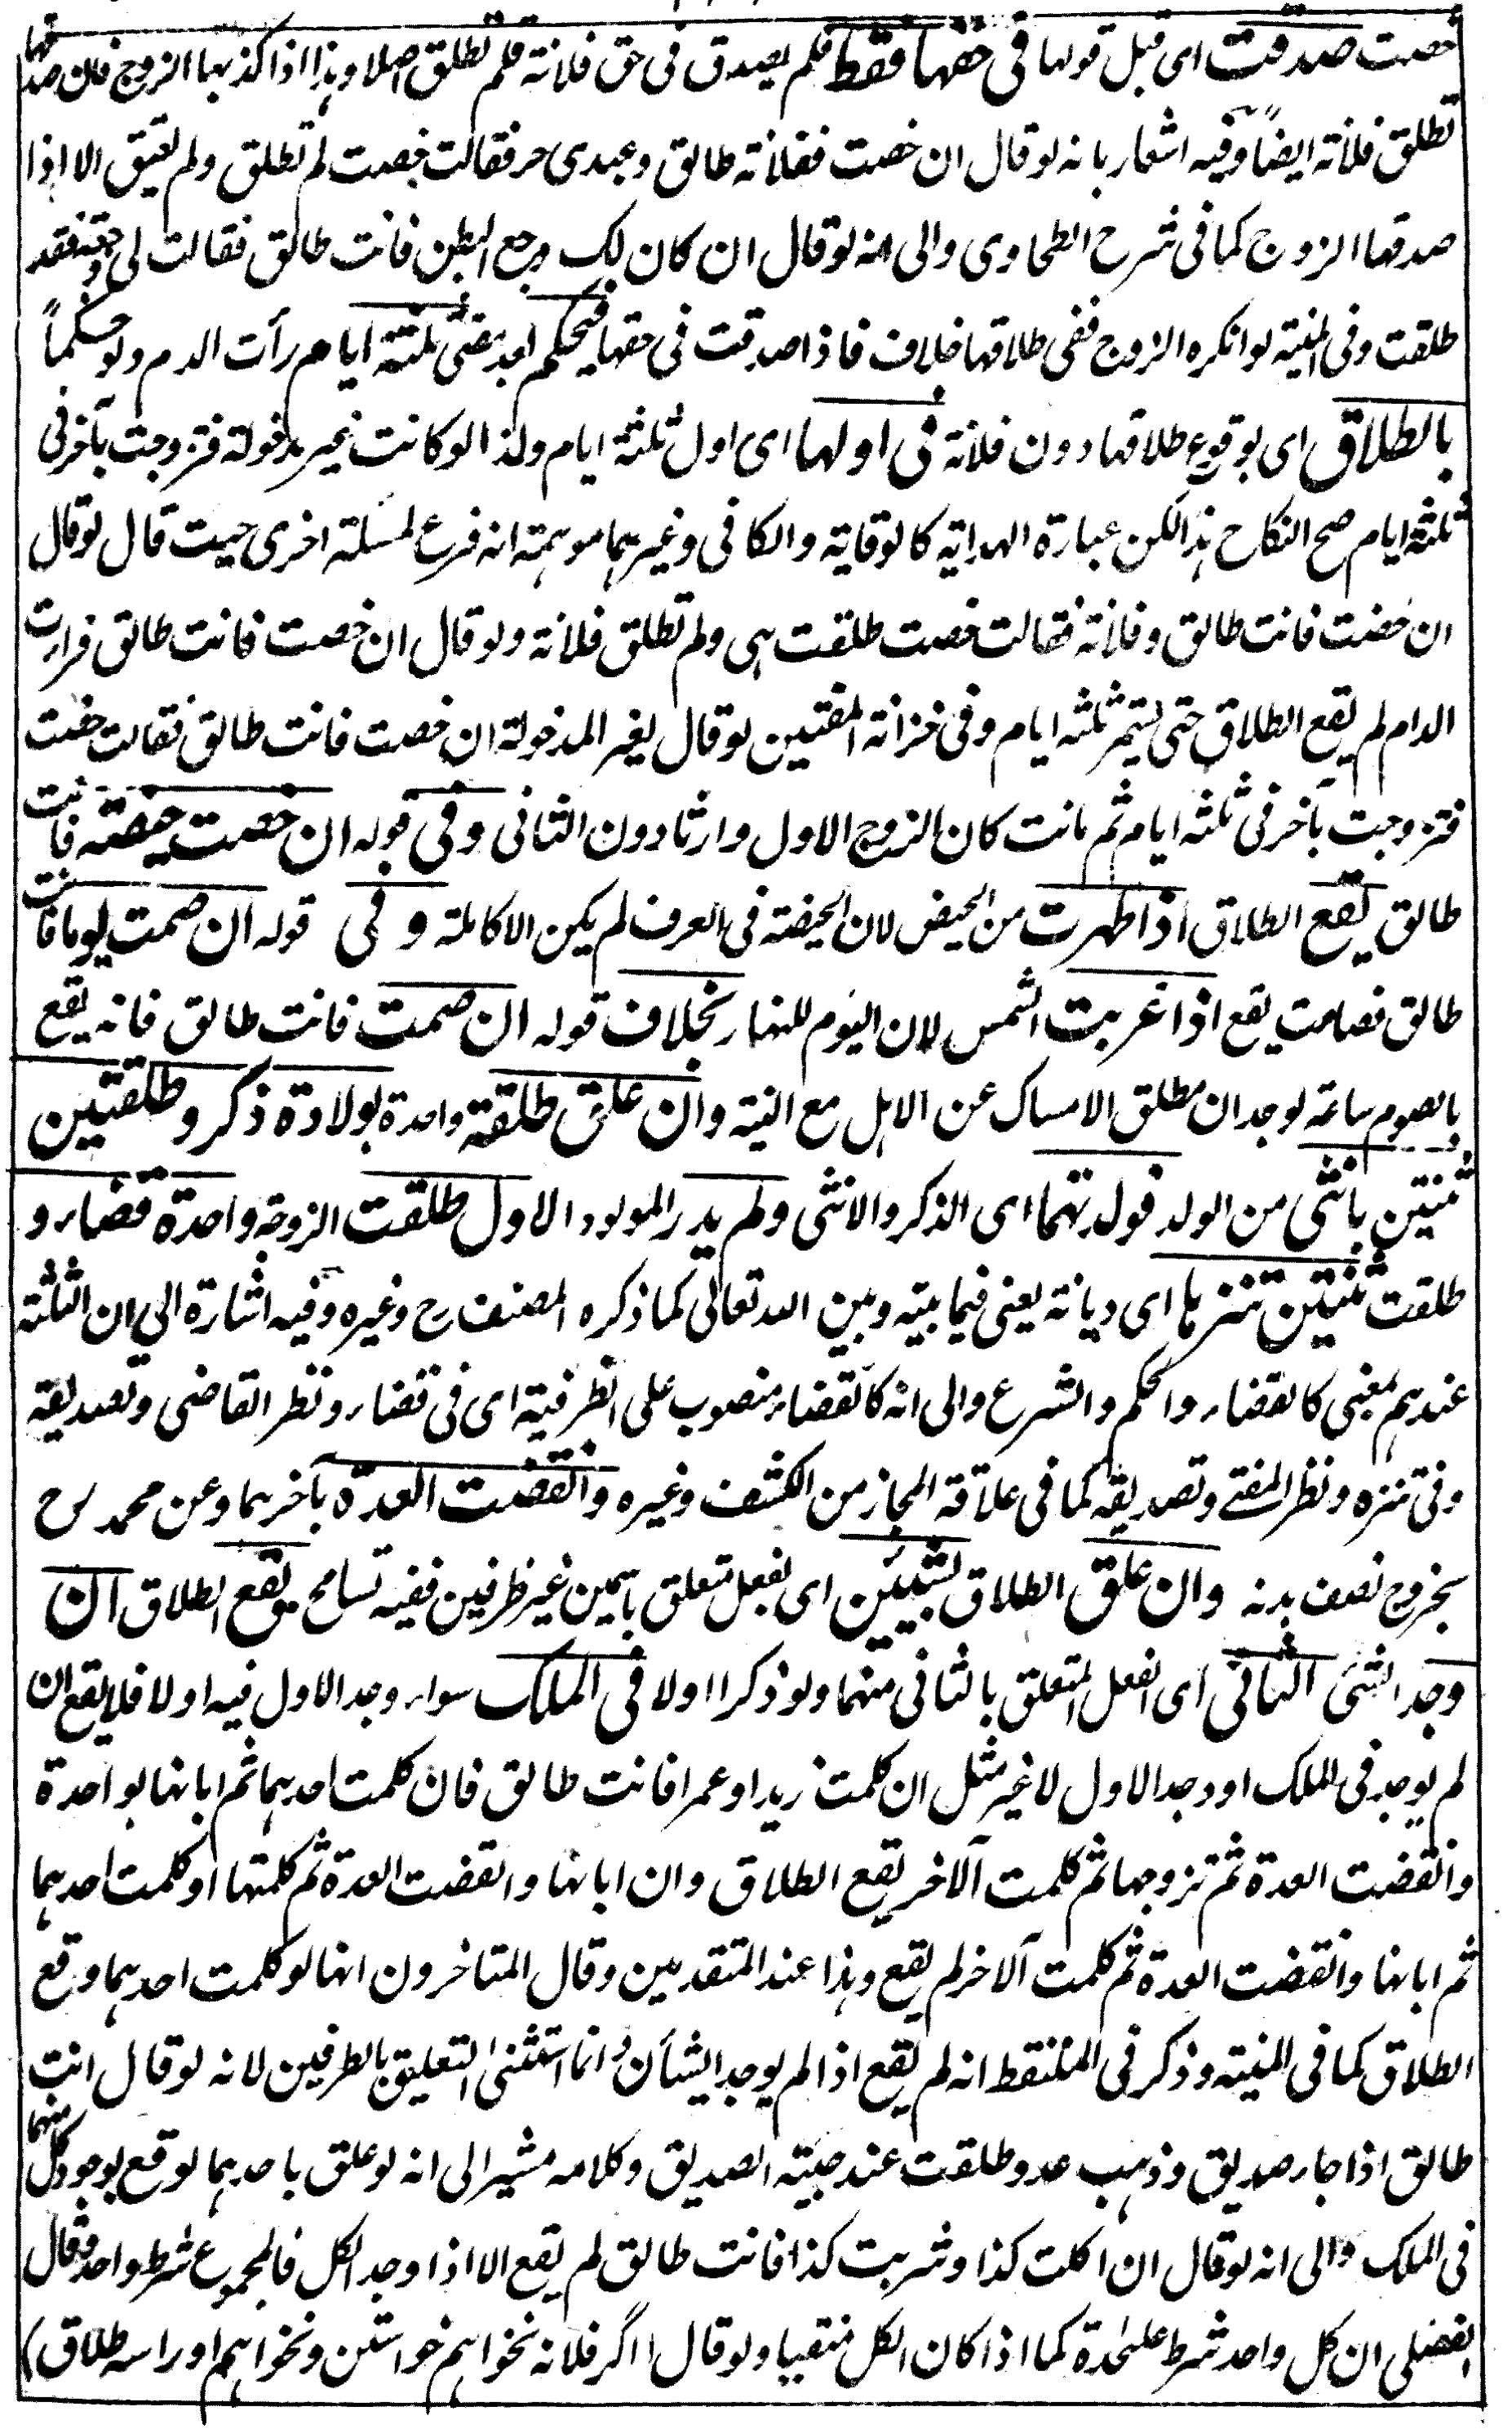 حضت صدقت اى قبل قولها فى حقها فقط فلم يصدق فى حق فلانة فلم تطلق اصلا وهذا اذا كذبها الزوج فان صدقها
تطلق فلانة ايضاً وفيه اشعار بانه لو قال ان حضت ففلانة طالق وعبدى حر فقالت حضت لم تطلق ولم يعتق الا اذا
صدقها الزوج كما فى شرح الطحاوى والى انه لو قال ان كان بك وجع البطن فانت طالق فقالت لى وجع فقد
طلقت وفى المنية لو انكره الزوج ففى طلاقها خلاف فاذا صدقت فى حقها فيحكم بعد مضى ثلثة ايام رأت الدم ولو حكماً
بالطلاق اى بوقوع طلاقها دون فلانة فى اولها اى اول ثلثة ايام ولذا لو كانت غير مدخولة فتزوجت بآخر فى
ثلثة ايام صح النكاح هذا لكن عبارة الهداية كالوقاية والكافى وغيرهما موهمة انه فرع لمسئلة اخرى حيث قال لو قال
ان حضت فانت طالق وفلانة فقالت حضت طلقت هى ولم تطلق فلانة ولو قال ان حضت فانت طالق فرات
الدام لم يقع الطلاق حتى يستمر ثلثه ايام وفى خزانة المفتين لو قال لغير المدخولة ان حضت فانت طالق فقالت حضت
فتزوجت بآخر فى ثلثه ايام ثم ماتت كان الزوج الاول وارثا دون الثانى وفى قوله ان حضت حيضة فانت
طالق يقع الطلاق اذا طهرت من الحيض لان الحيضة فى العرف لم يكن الا كاملة وفى قوله ان صمت يوما فانت
طالق فصامت يقع اذا غربت الشمس لان اليوم للنهار بخلاف قوله ان صمت فانت طالق فانه يقع
بالصوم ساعة لوجدان مطلق الامساك عن الاهل مع النية وان علق طلقة واحدة بولادة ذكر وطلقتين
ثنتين بانثى من الولد فولدتهما اى الذكر والانثى ولم يدر المولود الاول طلقت الزوجة واحدة قضاء و
طلقت ثنتين تنزها اى ديانة يعنى فيما بينه وبين الله تعالى كما ذكره المصنف رح وغيره وفيه اشارة الى ان الثلثة
عندهم بمعنى كالقضاء والحكم والشرع والى انه كالقضاء منصوب على الظرفية اى فى قضاء ونظر القاضى وتصديقه
وفى تنزه ونظر المفتى وتصديقه كما فى علاقة المجاز من الكشف وغيره وانقضت العدة بآخرهما وعن محمد رح
بخروج نصف بدنه وان علق الطلاق بشيئين اى بفعل متعلق باسمين غير ظرفين ففيه تسامح يقع الطلاق ان
وجد الشئ الثانى اى الفعل المتعلق بالثانى منهما ولو ذكرا اولا فى الملك سواء وجد الاول فيه او لا فلا يقع ان
لم يوجد فى الملك او وجد الاول لا غير مثل ان كلمت زيدا وعمرا فانت طالق فان كلمت احدهما ثم ابانها بواحدة
وانقضت العدة ثم تزوجها ثم كلمت الآخر يقع الطلاق وان ابانها وانقضت العدة ثم كلمتها او كلمت احدهما
ثم ابانها وانقضت العدة ثم كلمت الآخر لم يقع وهذا عند المتقدمين وقال المتاخرون انها لو كلمت احدهما وقع
الطلاق كما فى المنية وذكر فى الملتقط انه لم يقع اذا لم يوجد الشيأن وانما استثنى التعليق بالطرفين لانه لو قال انت
طالق اذا جاء صديق وذهب عدو طلقت عند جيئة الصديق وكلامه مشير الى انه لو علق باحدهما لوقع بوجود كل منهما
فى الملك والى انه لو قال ان اكلت كذا وشربت كذا فانت طالق لم يقع الا اذا وجد الكل فالمجموع شرط واحد وقال
الفضلى ان كل واحد شرط علىٰحدة كما اذا كان الكل منفيا ولو قال اگر فلانه نخواهم خواستن ونخواهم اوراسه طلاق)